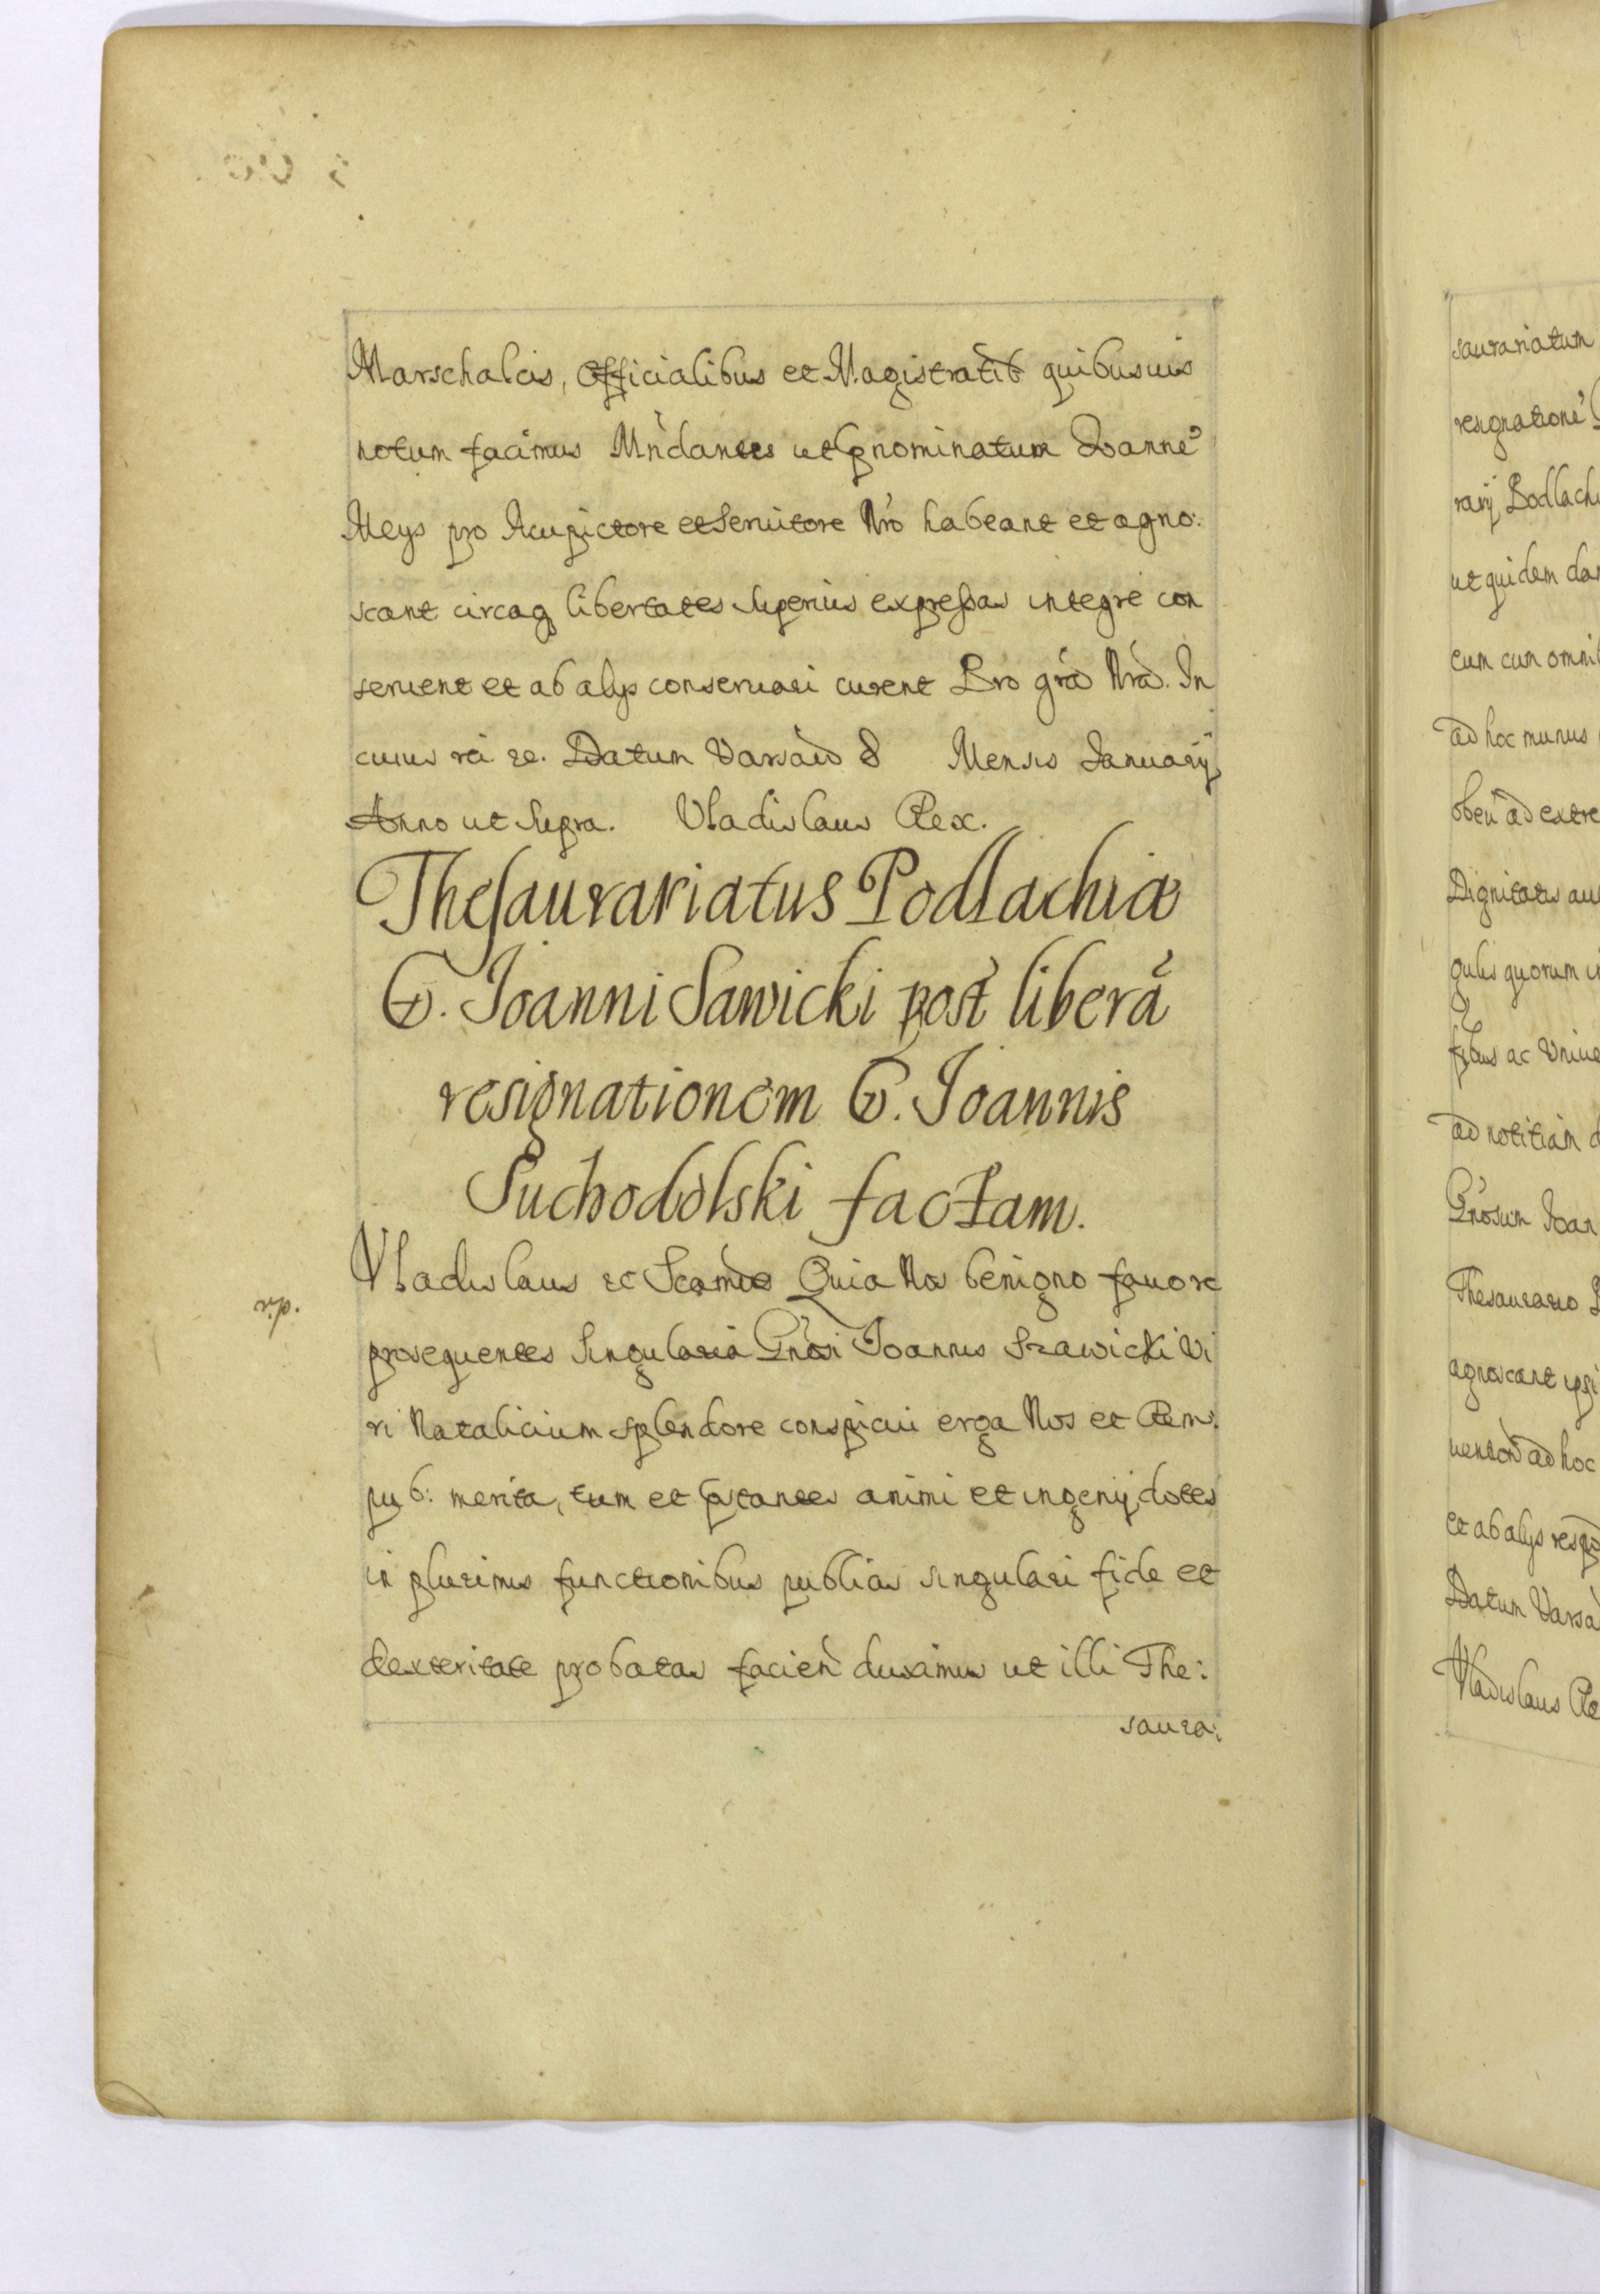 Marschalcis, Officialibus et Magistratib quibusuis
notum facimus Mndantes ut pnominatum Joanne
Meys pro Acupictore et Seruitore Nro habeant et agno:
scant circaq libertates superius expressas integre con
seruent et ab alijs conseruari curent Pro gra Nra. In
cuius rei ec. Datum Varsaw 8 Mensis Januarij
Anno ut Supra. Vladislaus Rex.
Thesaurariatus Podlachiæ
G. Joanni Sawicki post liberã
resignationem G. Joannis
Suchodolski factam.
Vladislaus ec Quia Nos benigno fauore
r.p.
prosequentes Singularia Gnosi Joannis Szawicki Vi
ri Natalicium splendore conspicui erga Nos et Rem.
pub: merita, tum et pstantes animi et ingenij dotes
in plurimis functionibus publicis singulari fide et
dexteritate probatas facien duximus ut illi The:
saura:
saurariatum
resignatione
rarij Podlachi
ut quidem
eum cum omnib
ad hoc munus
ad extre
Dignitatis
gulis quorum
ac Vniue
ad notitiam d
Gnosum Joan
Thesaurario
agnoscant ipsi
ad hoc
et ab alijs
Datum Varsa
Vladislaus Re